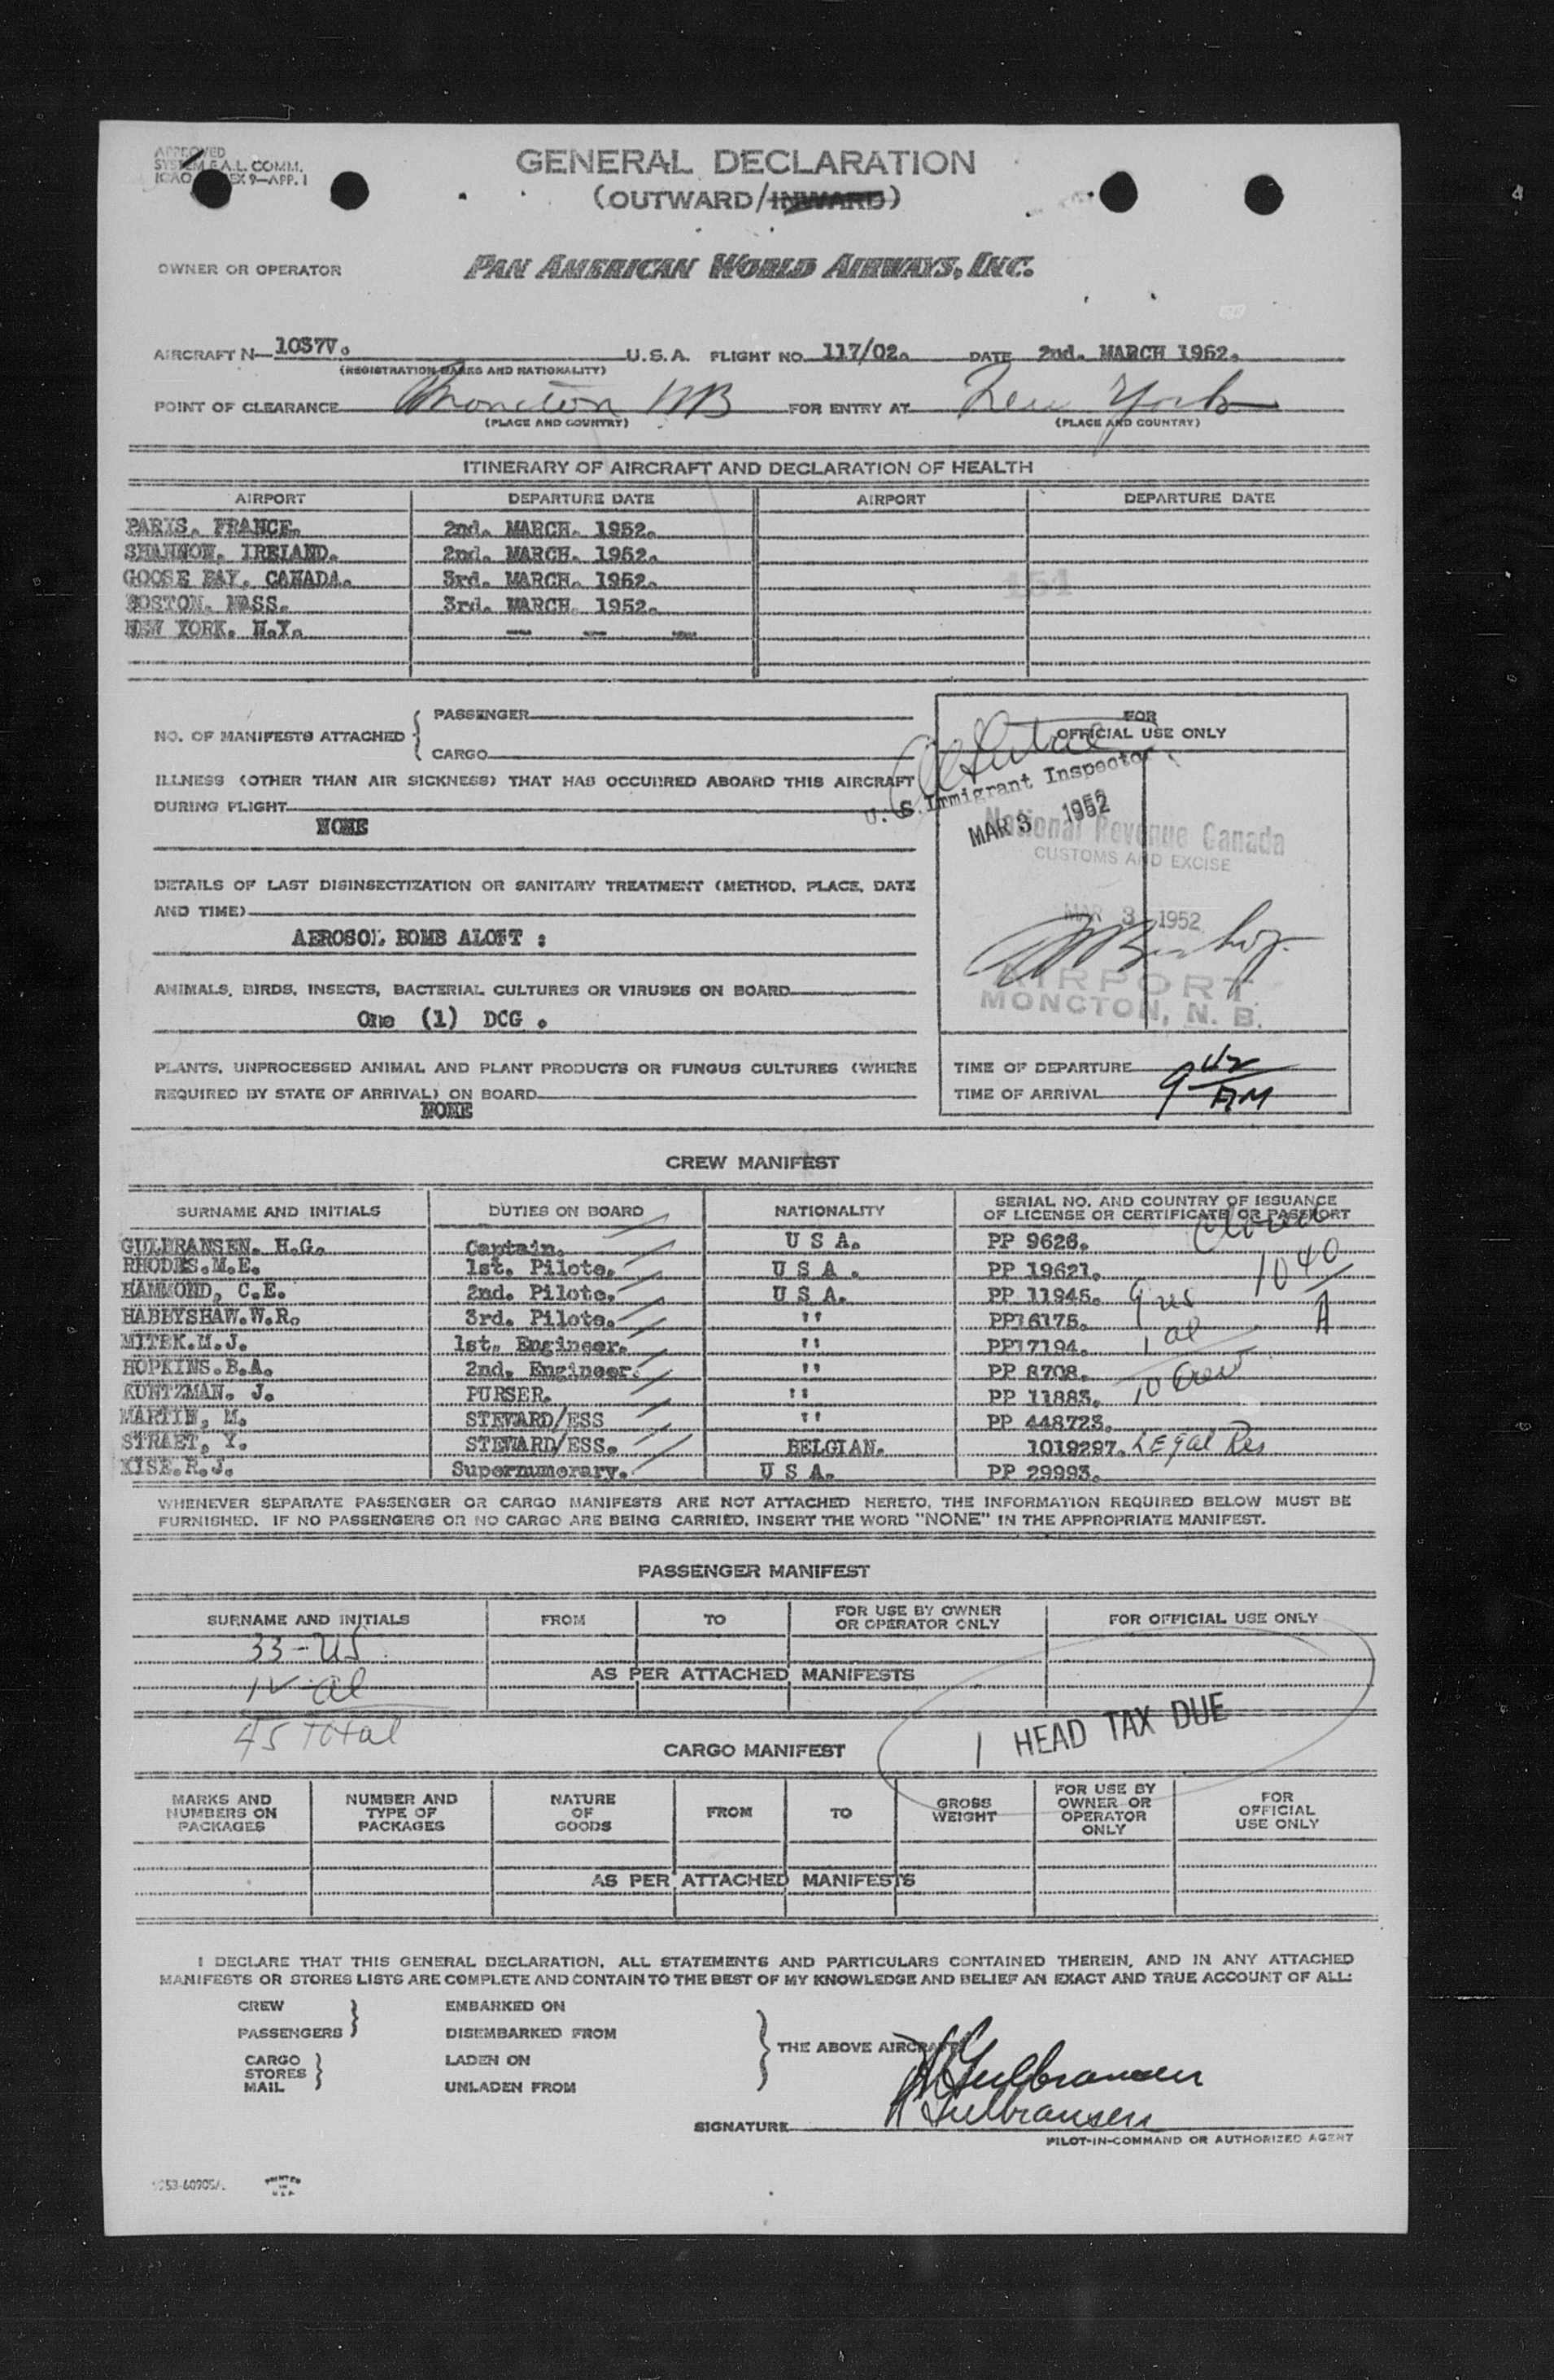 APPROVED
SYSTEM F.A.L. COMM.
ICAO EX 9—APP. 1
GENERAL DECLARATION
(OUTWARD/INWARD)
OWNER OR OPERATOR PAN AMERICAN WORLD AIRWAYS, INC.
AIRCRAFT N—1037V. U.S.A. FLIGHT NO. 117/02. DATE 2nd. MARCH 1952.
(REGISTRATION MARKS AND NATIONALITY)
POINT OF CLEARANCE Moncton NB FOR ENTRY AT New York
(PLACE AND COUNTRY) (PLACE AND COUNTRY)
ITINERARY OF AIRCRAFT AND DECLARATION OF HEALTH
AIRPORT DEPARTURE DATE AIRPORT DEPARTURE DATE
PARIS. FRANCE. 2nd. MARCH. 1952.
SHANNON. IRELAND. 2nd. MARCH. 1952.
GOOSE BAY. CANADA. 3rd. MARCH. 1952. 151
BOSTON. MASS. 3rd. MARCH. 1952.
NEW YORK. N.Y. - - -
NO. OF MANIFESTS ATTACHED { PASSENGER
CARGO
FOR
OFFICIAL USE ONLY
ILLNESS (OTHER THAN AIR SICKNESS) THAT HAS OCCURRED ABOARD THIS AIRCRAFT
DURING FLIGHT
NONE
U. S. Immigrant Inspector
MAR 3 1952
National Revenue Canada
CUSTOMS AND EXCISE
DETAILS OF LAST DISINSECTIZATION OR SANITARY TREATMENT (METHOD, PLACE, DATE
AND TIME)
AEROSOL BOMB ALOFT :
MAR 3 1952
AIRPORT
MONCTON, N. B.
ANIMALS, BIRDS, INSECTS, BACTERIAL CULTURES OR VIRUSES ON BOARD
One (1) DCG .
PLANTS, UNPROCESSED ANIMAL AND PLANT PRODUCTS OR FUNGUS CULTURES (WHERE
REQUIRED BY STATE OF ARRIVAL) ON BOARD
NONE
TIME OF DEPARTURE
TIME OF ARRIVAL 9 AM
CREW MANIFEST
SURNAME AND INITIALS DUTIES ON BOARD NATIONALITY SERIAL NO. AND COUNTRY OF ISSUANCE
OF LICENSE OR CERTIFICATE OR PASSPORT
GULBRANSEN. H.G. Captain. U S A. PP 9626.
RHODES.M.E. 1st. Pilote. U S A . PP 19621. 10 40
HAMMOND, C.E. 2nd. Pilote. U S A. PP 11945. 9 us A
HABBYSHAW.W.R. 3rd. Pilote. " PP16175. 1 al
MITEK.M.J. 1st. Engineer. " PP17194.
HOPKINS.B.A. 2nd. Engineer. " PP 8708. 10 Crew
KUNTZMAN. J. PURSER. " PP 11883.
MARTIN, M. STEWARD/ESS " PP 448723.
STRAET, Y. STEWARD/ESS. BELGIAN. 1019297. LEgal Res
KISE.R.J. Supernumerary. U S A. PP 29993.
WHENEVER SEPARATE PASSENGER OR CARGO MANIFESTS ARE NOT ATTACHED HERETO, THE INFORMATION REQUIRED BELOW MUST BE
FURNISHED. IF NO PASSENGERS OR NO CARGO ARE BEING CARRIED, INSERT THE WORD "NONE" IN THE APPROPRIATE MANIFEST.
PASSENGER MANIFEST
SURNAME AND INITIALS FROM TO FOR USE BY OWNER
OR OPERATOR ONLY FOR OFFICIAL USE ONLY
33-US
AS PER ATTACHED MANIFESTS
12 al
45 Total
1 HEAD TAX DUE
CARGO MANIFEST
MARKS AND
NUMBERS ON
PACKAGES NUMBER AND
TYPE OF
PACKAGES NATURE
OF
GOODS FROM TO GROSS
WEIGHT FOR USE BY
OWNER OR
OPERATOR
ONLY FOR
OFFICIAL
USE ONLY
AS PER ATTACHED MANIFESTS
I DECLARE THAT THIS GENERAL DECLARATION, ALL STATEMENTS AND PARTICULARS CONTAINED THEREIN, AND IN ANY ATTACHED
MANIFESTS OR STORES LISTS ARE COMPLETE AND CONTAIN TO THE BEST OF MY KNOWLEDGE AND BELIEF AN EXACT AND TRUE ACCOUNT OF ALL:
CREW EMBARKED ON
PASSENGERS DISEMBARKED FROM
THE ABOVE AIRCRAFT
CARGO LADEN ON
STORES
MAIL UNLADEN FROM
H Gulbransen
H Gulbransen
SIGNATURE
PILOT-IN-COMMAND OR AUTHORIZED AGENT
PRINTED
IN
U.S.A.